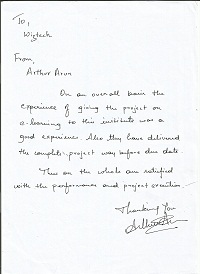 To,
Wigtech
From,
Arthur Arun
On an overall basis the
experience of giving the project on
e-learning to this institute was a
good experience. Also they have delivered
the complete project way before due date
Thus on the whole am satisfied
with the performance and project execution.
Thanking You